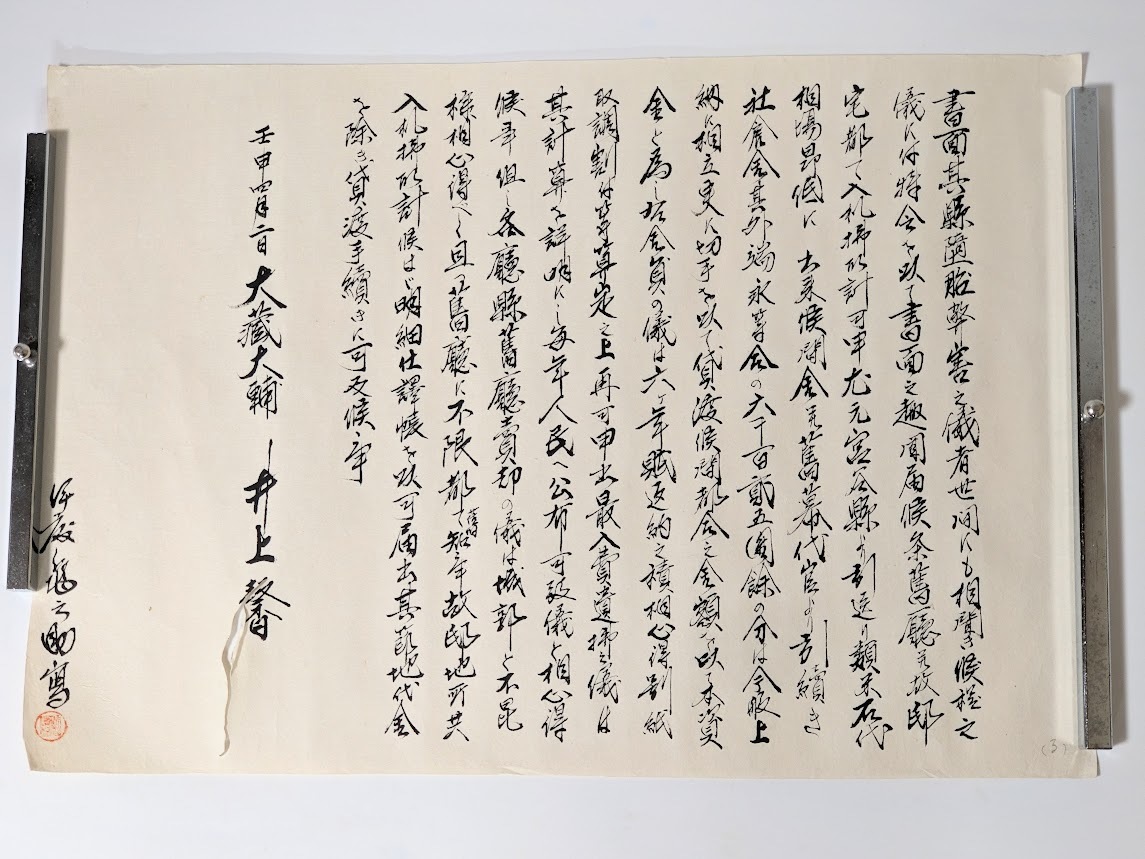 書面其縣堕胎弊害之儀者世間にも相聞き候様之
儀に付特令を以て書面之趣聞届候条舊廳並故邸
宅都て入札拂取計可申尤元宮谷縣より引送り類米石代
相場昂低に出来候潤金並舊幕代官より引續き
社倉金其外端永等金の六千百貳五圓餘の分は全收上
納に相立更に切手を以て貸渡候潤都合之金額を以本資
金と為し招合資の儀は六ヶ年賦返納之積相心得別紙
取調割付等算定之上再可申出最入費遣拂之儀は
其計算を詳明にし毎年人民へ公布可致儀と相心得
候事但し各廳縣舊廳賣却の儀は城郭と不毘
様相心得べく且又舊廳に不限都て知事故邸地所共
入札拂取計候はゞ明細仕譯帳を以可届出其節地代金
を除き貸渡手續きに可及候事
壬申四月二日 大藏大輔 井上馨
之助寫
(3)